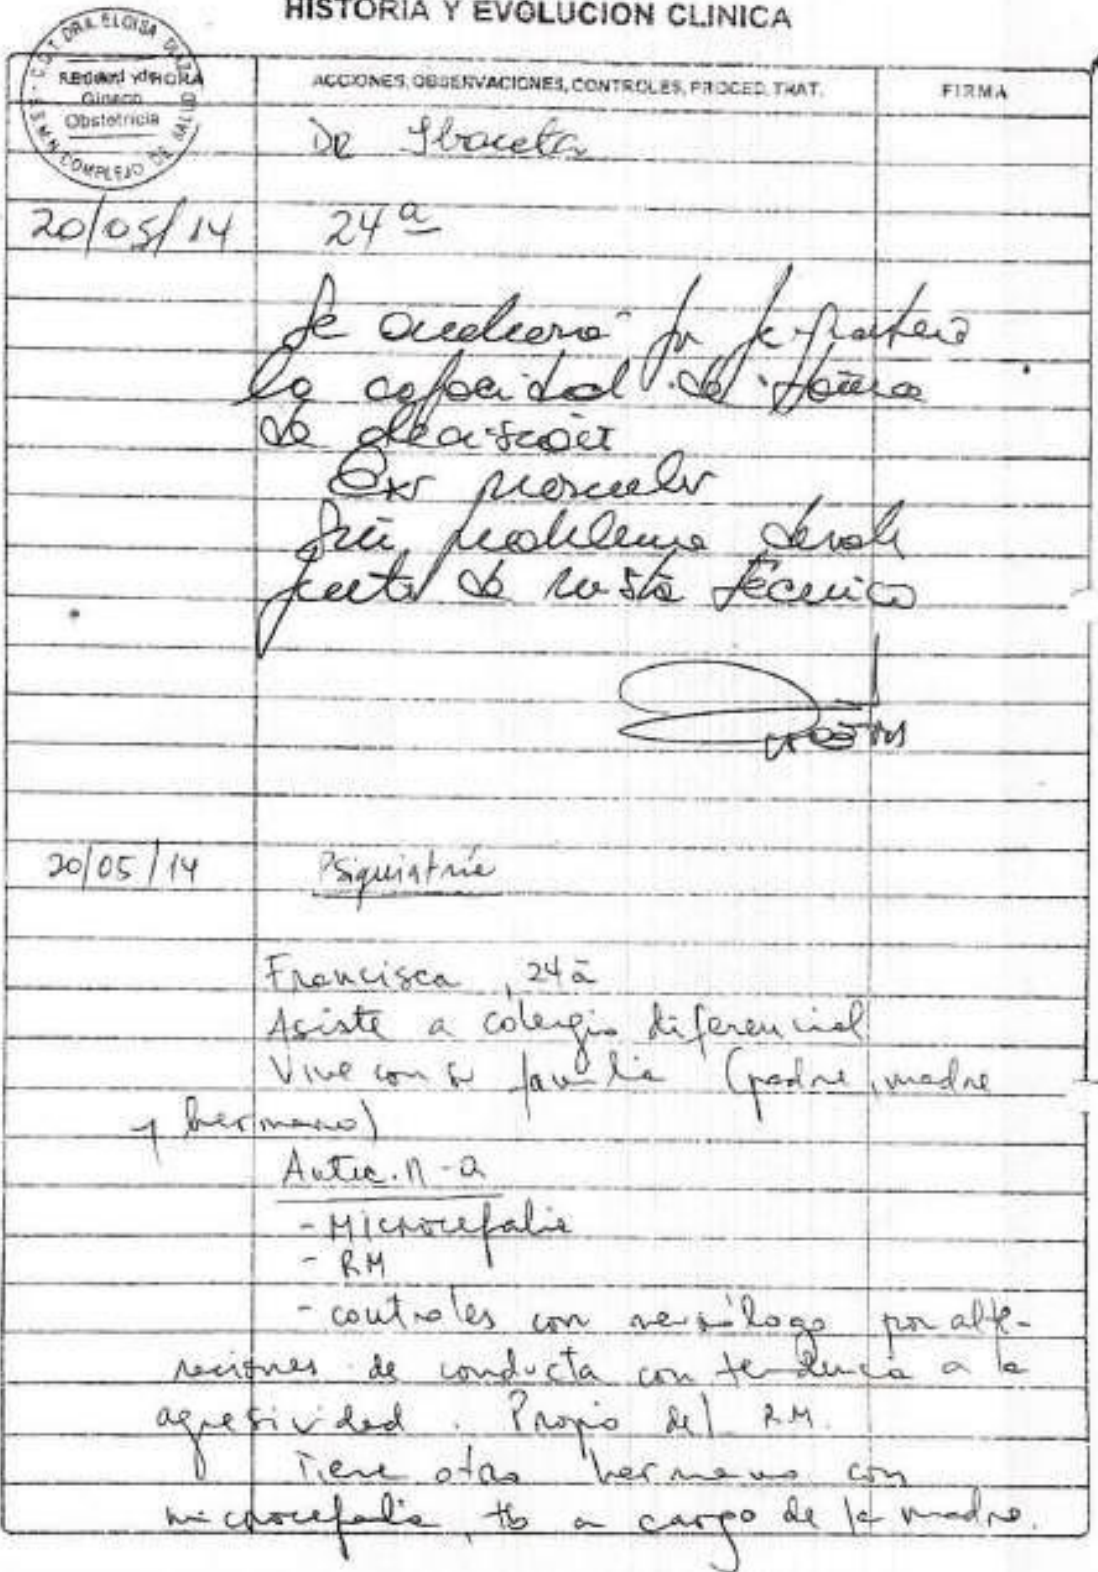 HISTORIA Y EVOLUCION CLINICA
C.D.T. DRA. ELOISA DIAZ
Gineco
Obstetricia
S.S.M.N. COMPLEJO DE SALUD
HORA
ACCIONES, OBSERVACIONES, CONTROLES, PROCED. TRAT.
FIRMA
DR Ibaceta
20/05/14 24a
Se
la capacidad de toma
de decisión
Ex
Sin problema desde
punto de vista técnico
20/05/14 Psiquiatría
Francisca, 24 a
Asiste a colegio diferencial
Vive con su familia (padre, madre
y hermano)
Antec.
- Microcefalia
- RM
- controles con neurólogo por alte-
raciones de conducta con tendencia a la
agresividad. Propio del RM.
Tiene otro hermano con
microcefalia, tb a cargo de la madre.